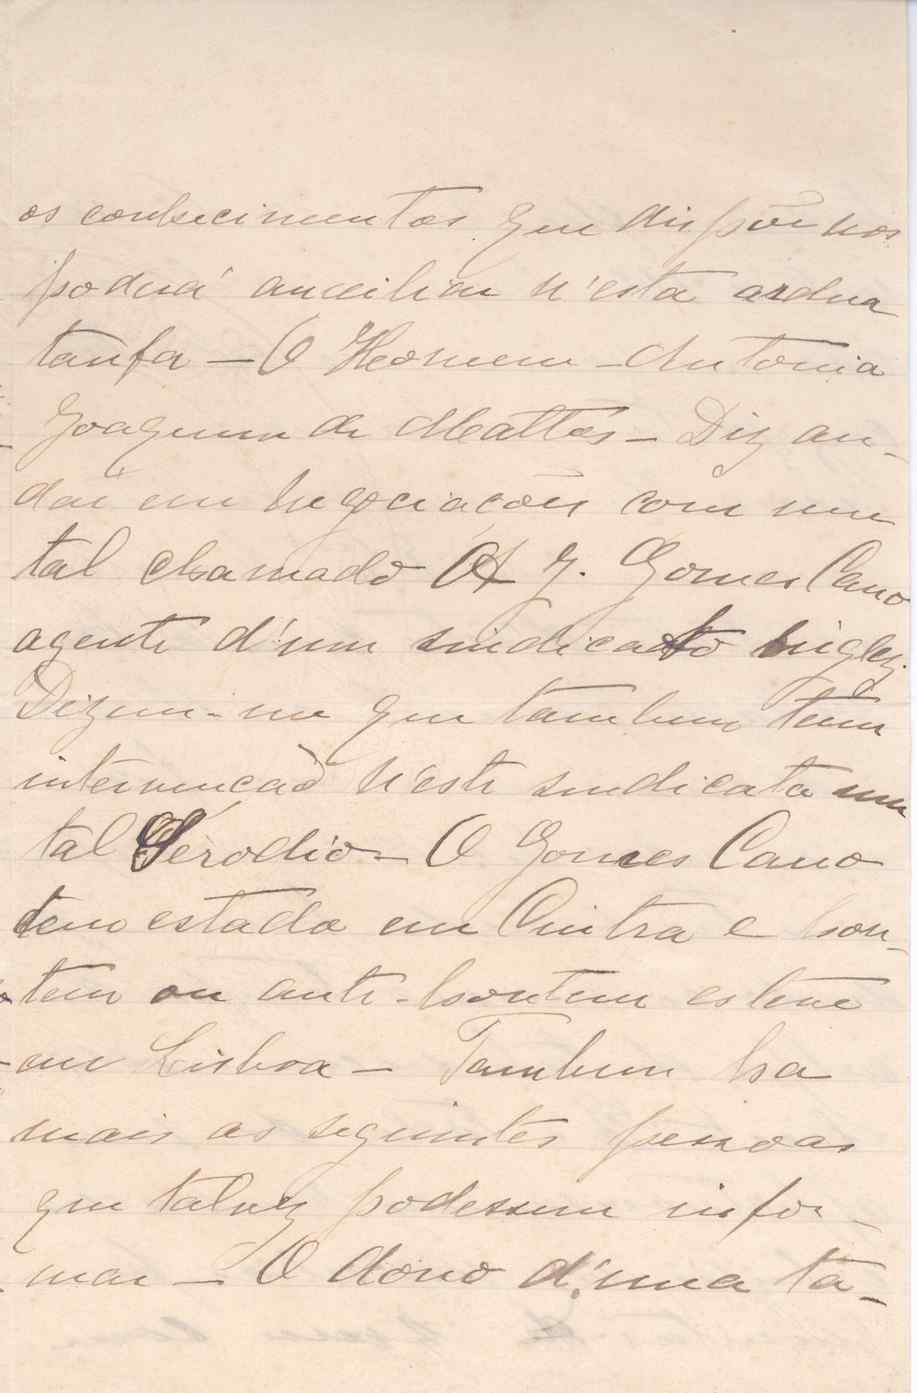 os conhecimentos que dispõe nos
poderá auceiliar n'esta ardua
tarefa — O Homem — Antonio
Joaquim de Mattos — Diz an-
dar em negociacões com um
tal chamado A J. Gomes Cano
agente d'um sindicato inglez
Dizem-me que tambem tem
intervencão n'este sindicato um
tal Serodio — O Gomes Cano
tem estado em Cintra e hon-
tem ou ante-hontem esteve
em Lisboa — Tambem ha
mais as seguintes pessoas
que talvez podessem infor-
mar — O dono d'uma ta-